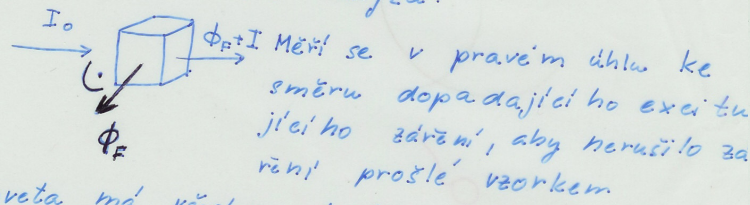 I₀
ϕF+I Měří se v pravém úhlu ke
směru dopadajícího excitu
jícího záření, aby nerušilo zá
ření prošlé vzorkem
ϕF
veta má